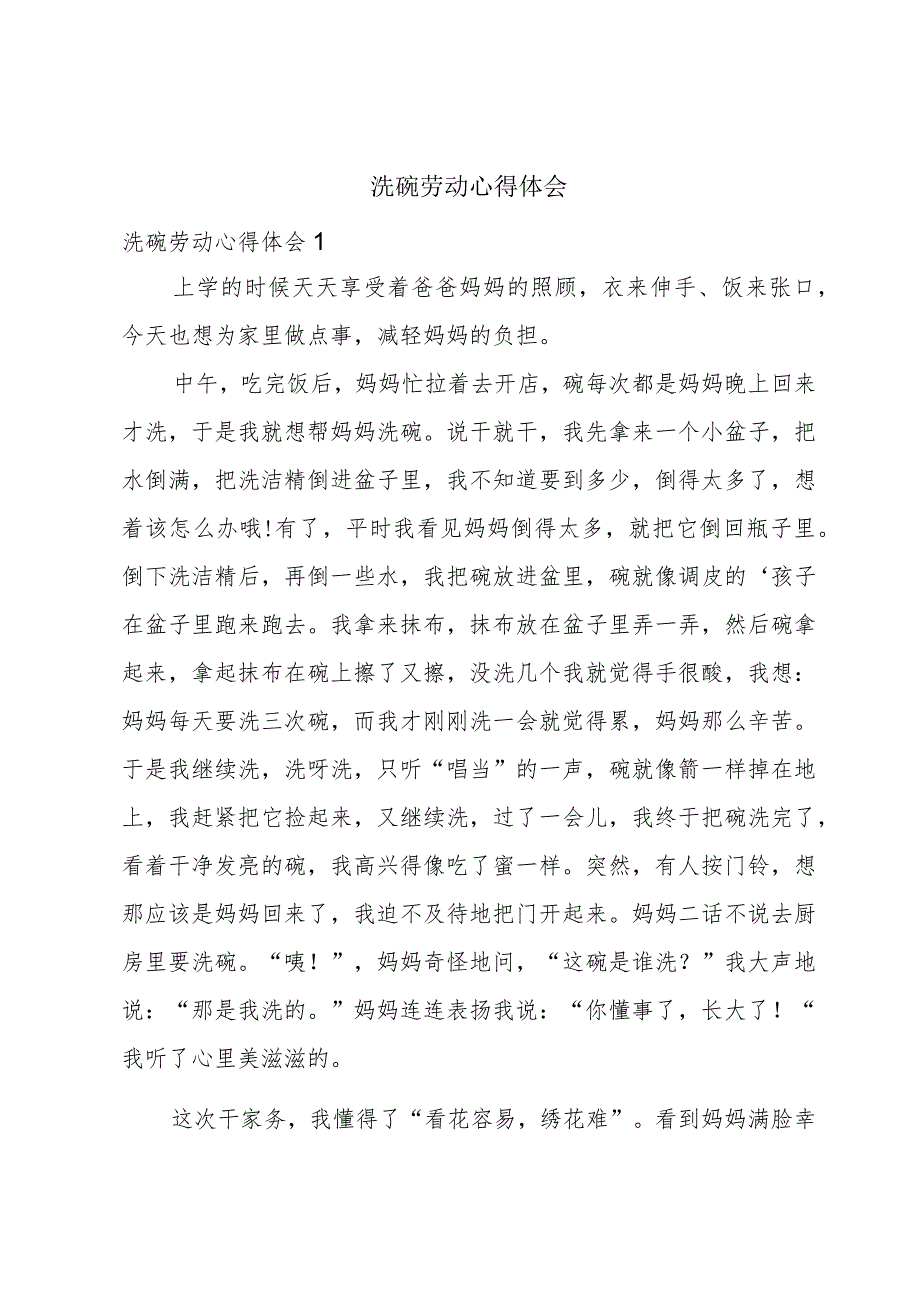 洗碗劳动心得体会
洗碗劳动心得体会1
上学的时候天天享受着爸爸妈妈的照顾，衣来伸手、饭来张口，
今天也想为家里做点事，减轻妈妈的负担。
中午，吃完饭后，妈妈忙拉着去开店，碗每次都是妈妈晚上回来
才洗，于是我就想帮妈妈洗碗。说干就干，我先拿来一个小盆子，把
水倒满，把洗洁精倒进盆子里，我不知道要到多少，倒得太多了，想
着该怎么办哦!有了，平时我看见妈妈倒得太多，就把它倒回瓶子里。
倒下洗洁精后，再倒一些水，我把碗放进盆里，碗就像调皮的‘孩子
在盆子里跑来跑去。我拿来抹布，抹布放在盆子里弄一弄，然后碗拿
起来，拿起抹布在碗上擦了又擦，没洗几个我就觉得手很酸，我想：
妈妈每天要洗三次碗，而我才刚刚洗一会就觉得累，妈妈那么辛苦。
于是我继续洗，洗呀洗，只听“唱当”的一声，碗就像箭一样掉在地
上，我赶紧把它捡起来，又继续洗，过了一会儿，我终于把碗洗完了，
看着干净发亮的碗，我高兴得像吃了蜜一样。突然，有人按门铃，想
那应该是妈妈回来了，我迫不及待地把门开起来。妈妈二话不说去厨
房里要洗碗。“咦！”，妈妈奇怪地问，“这碗是谁洗？”我大声地
说：“那是我洗的。”妈妈连连表扬我说：“你懂事了，长大了！“
我听了心里美滋滋的。
这次干家务，我懂得了“看花容易，绣花难”。看到妈妈满脸幸